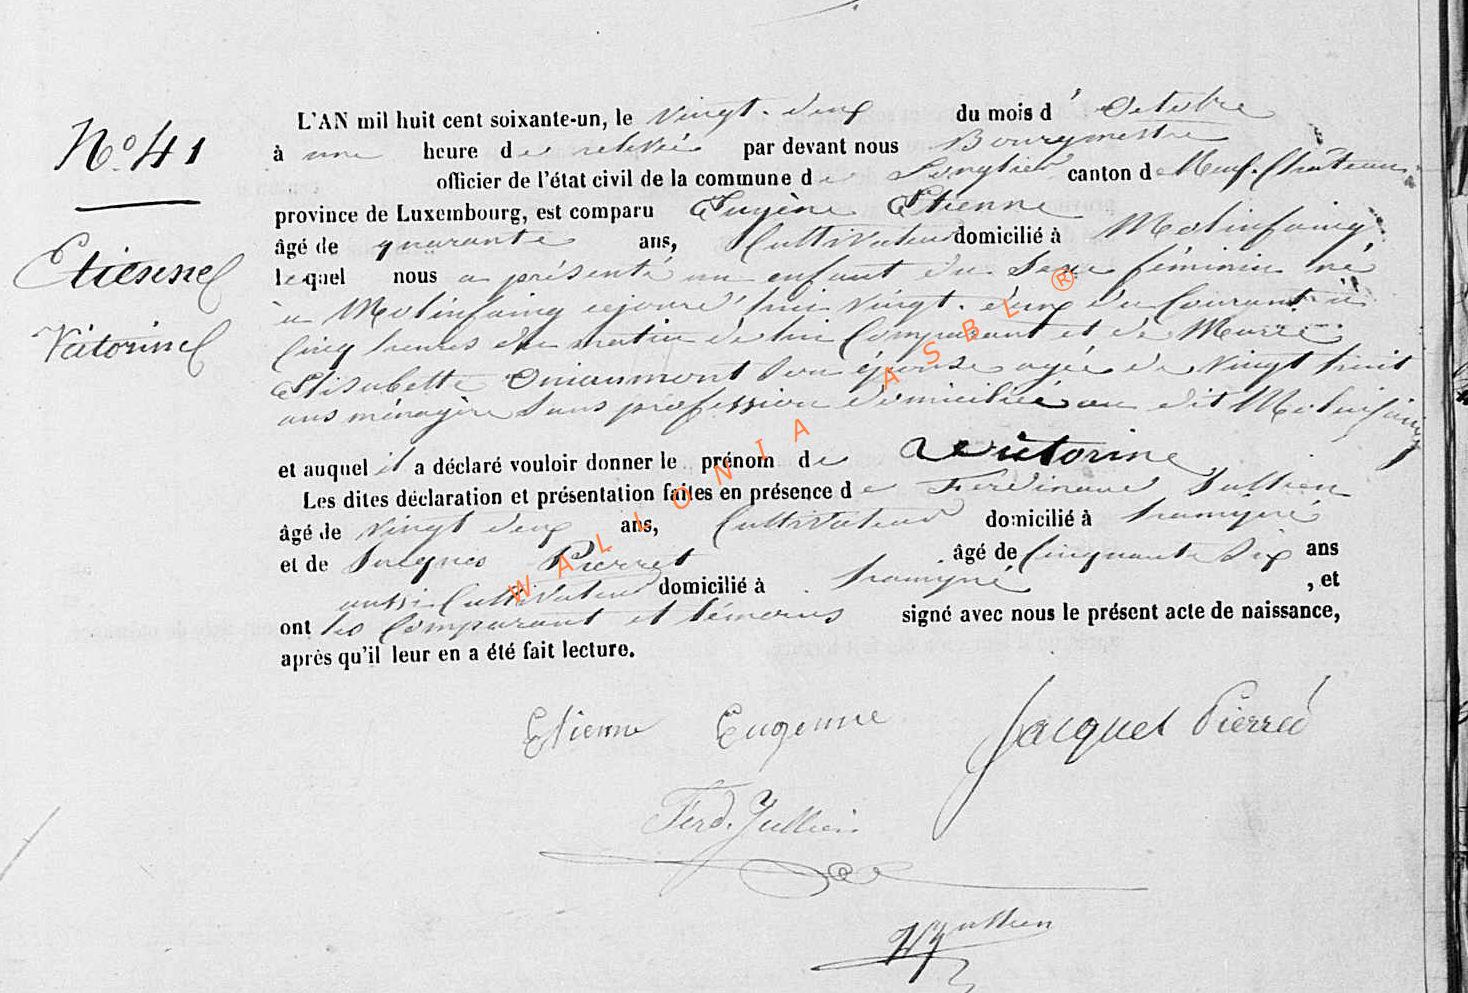 N° 41
Etienne
Victorine
L'AN mil huit cent soixante-un, le vingt-deux du mois d' Octobre
à une heure de relevée par devant nous Bourgmestre
officier de l'état civil de la commune de Longlier canton de Neuf-Château
province de Luxembourg, est comparu Eugène Etienne
âgé de quarante ans, Cultivateur domicilié à Molinfaing,
lequel nous a présenté un enfant du Sexe féminin né
à Molinfaing cejourd'hui vingt-deux du Courant à
Cinq heures du matin de lui Comparant et de Marie
Elisabette Son épouse agée de vingt huit
ans ménagère Sans profession domiciliée au dit Molinfaing
et auquel il a déclaré vouloir donner le prénom de Victorine
Les dites déclaration et présentation faites en présence de Ferdinand Jullien
âgé de vingt deux ans, Cultivateur domicilié à
et de Jacques Pierret âgé de Cinquante Six ans
aussi Cultivateur domicilié à , et
ont les Comparant et témoins signé avec nous le présent acte de naissance,
après qu'il leur en a été fait lecture.
Etienne Eugenne Jacques Pierret
Ferd. Jullien
Jullien
WALLONIA ASBL ®